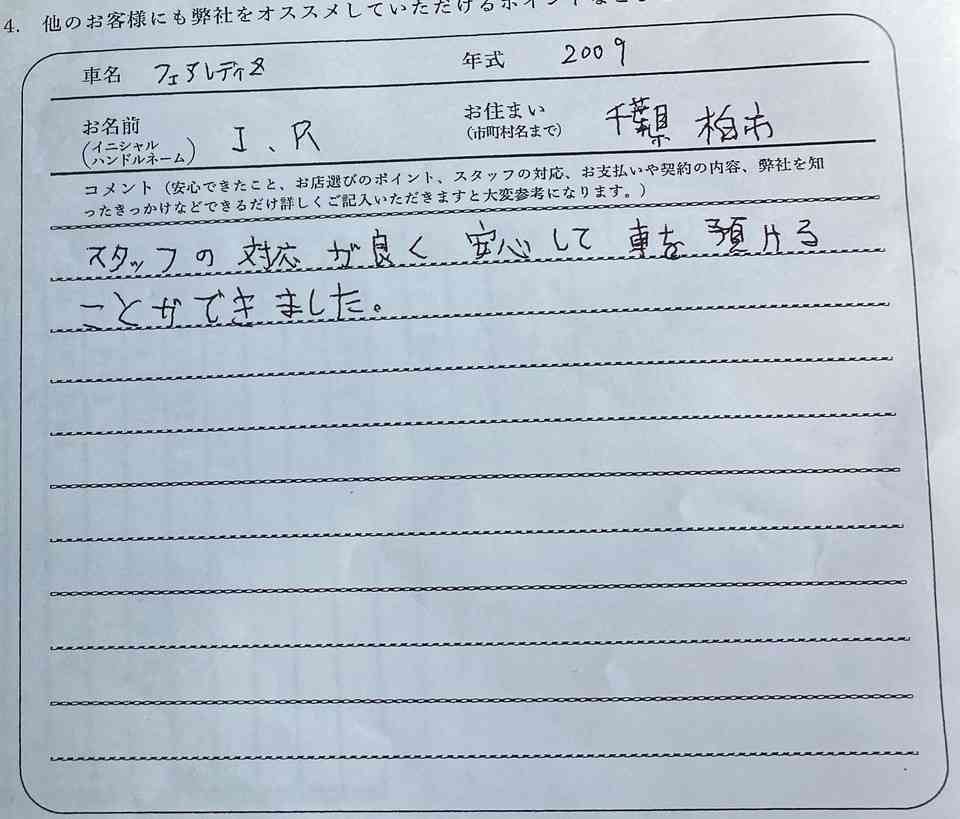 4. 他のお客様にも弊社をオススメしていただけるポイントなど
車名 フェアレディZ 年式 2009
お名前 (イニシャル ハンドルネーム) I、R お住まい (市町村名まで) 千葉県 柏市
コメント（安心できたこと、お店選びのポイント、スタッフの対応、お支払いや契約の内容、弊社を知
ったきっかけなどできるだけ詳しくご記入いただきますと大変参考になります。）
スタッフの対応が良く 安心して 車を預ける
ことができました。